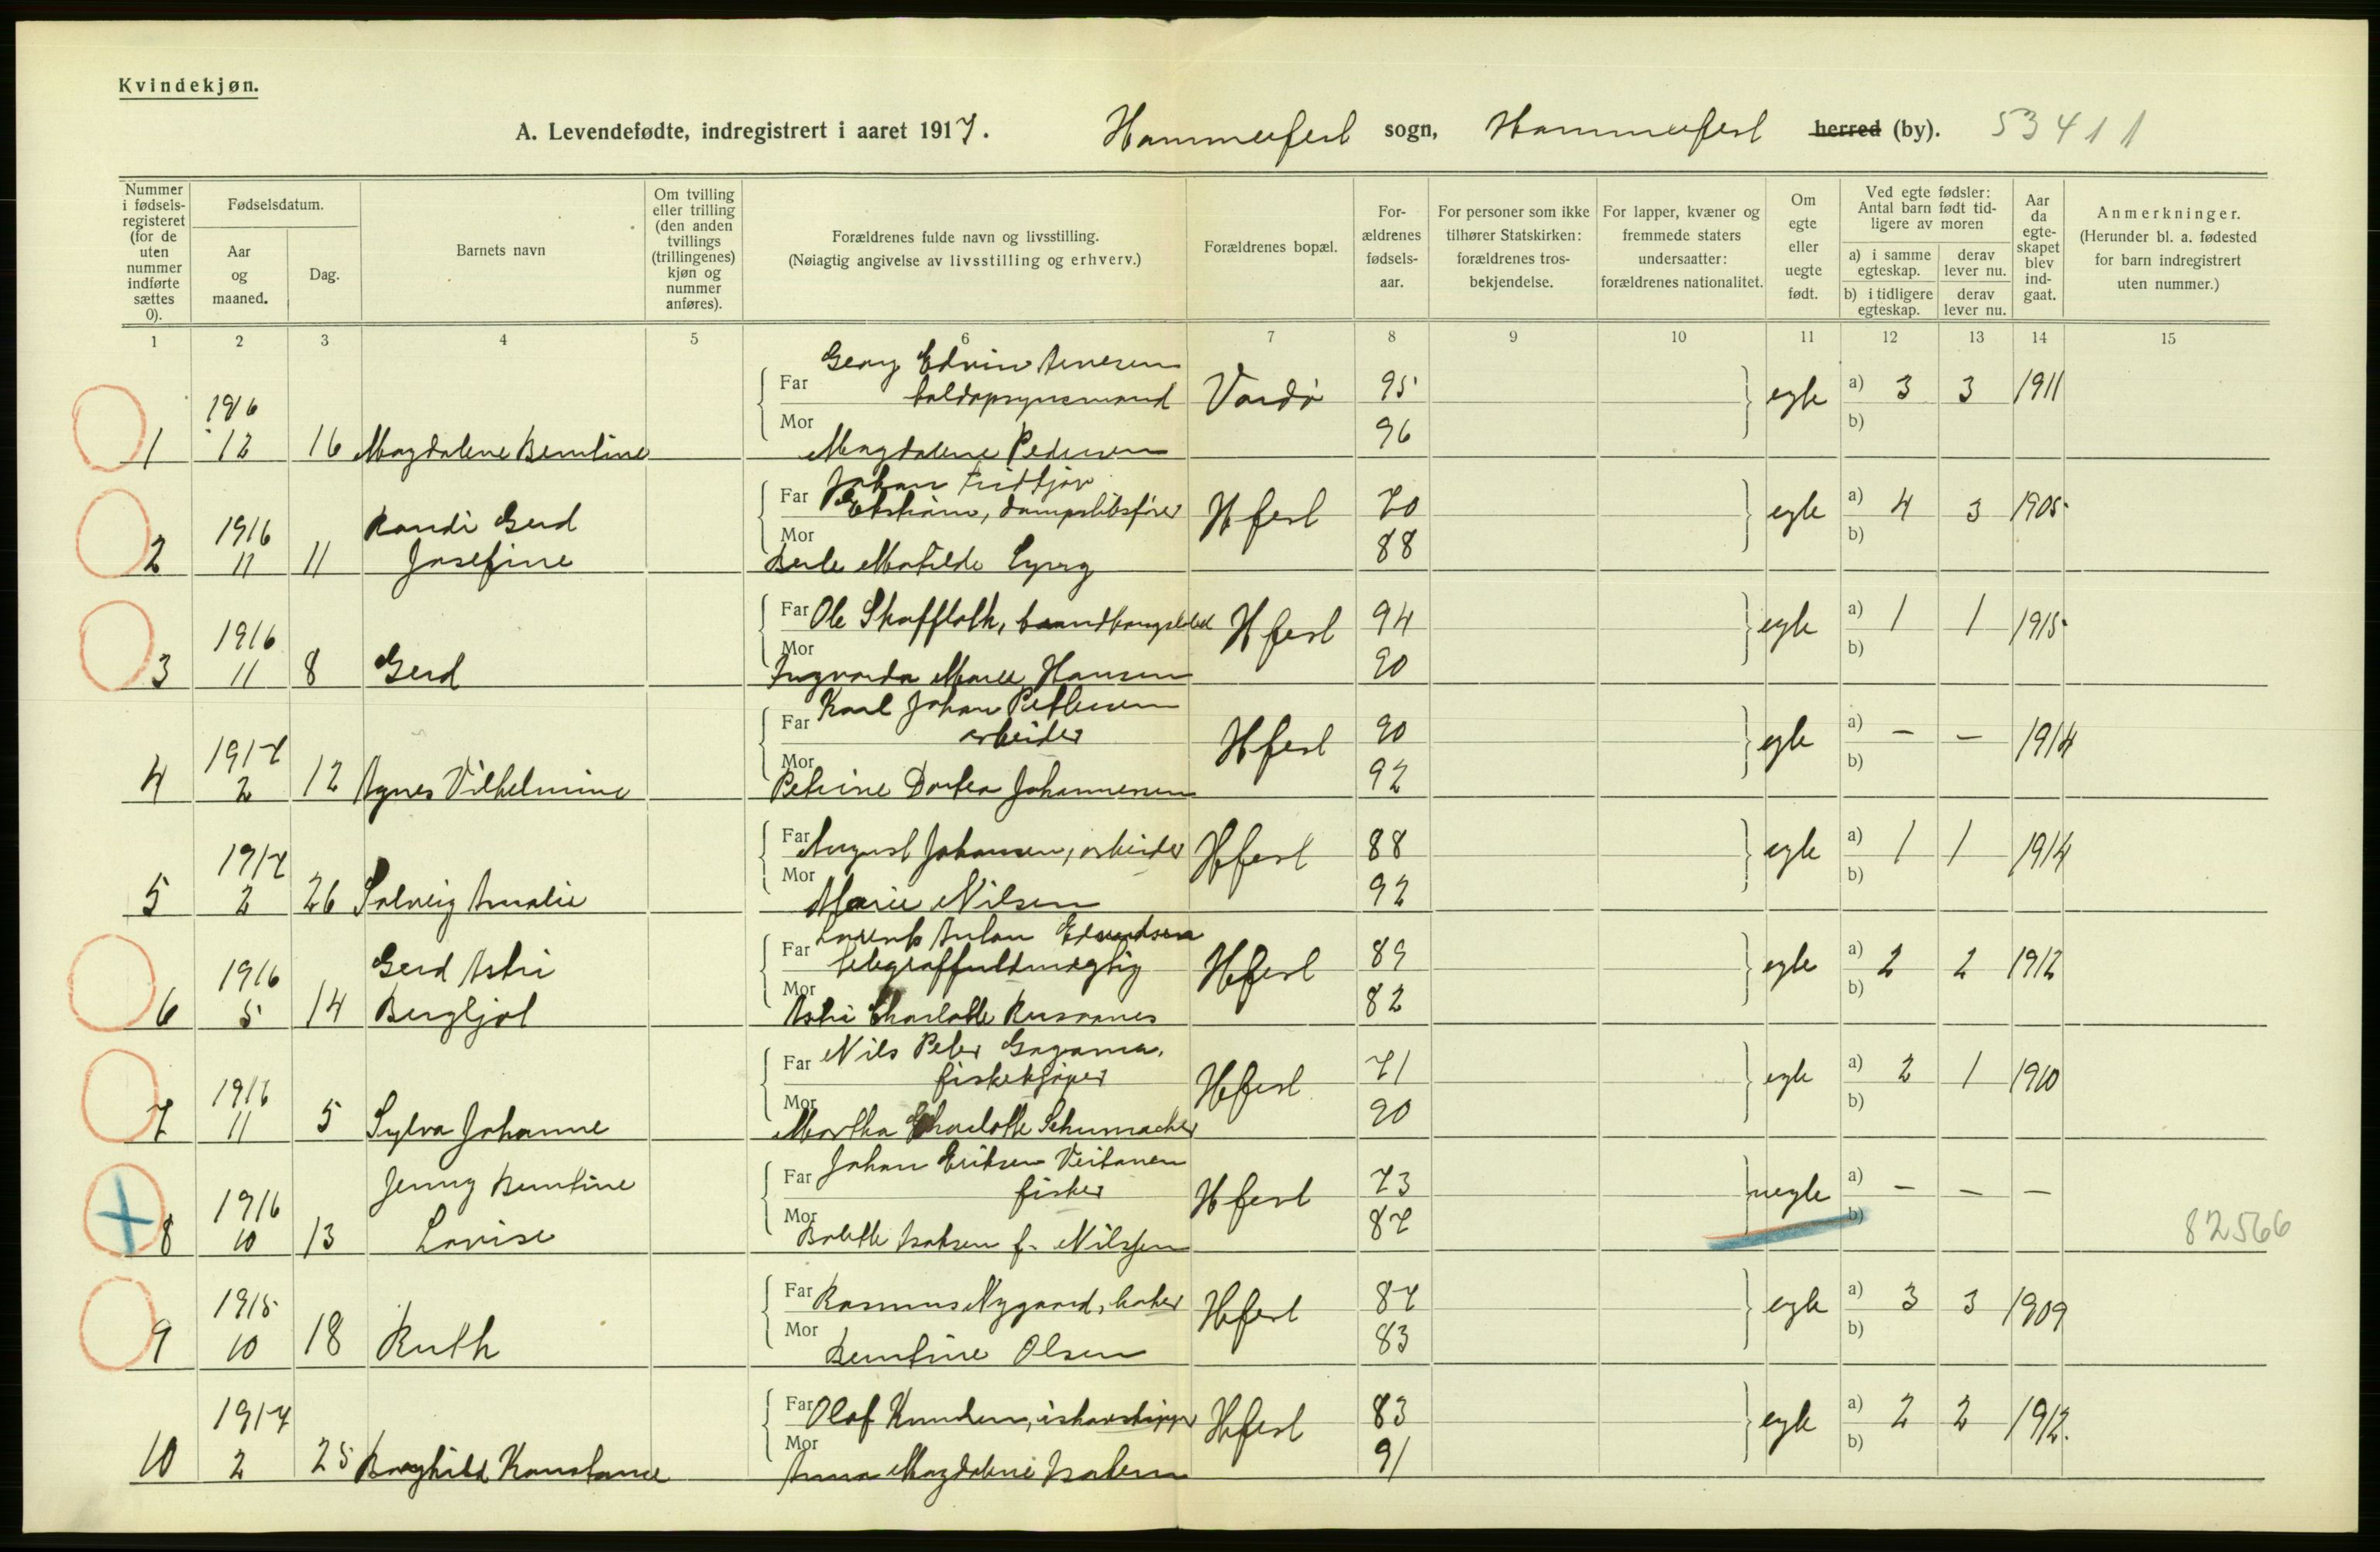 Kvindekjøn.
A. Levendefødte, indregistrert i aaret 1917. Hammerfest sogn, Hammerfest herred (by). 53411
Nummer i fødsels-registeret (for de uten nummer indførte sættes 0).
Fødselsdatum.
Aar og maaned.
Dag.
Barnets navn
Om tvilling eller trilling (den anden tvillings (trillingenes) kjøn og nummer anføres).
Forældrenes fulde navn og livsstilling.
(Nøiagtig angivelse av livsstilling og erhverv.)
Forældrenes bopæl.
For-ældrenes fødsels-aar.
For personer som ikke tilhører Statskirken: forældrenes tros-bekjendelse.
For lapper, kvæner og fremmede staters undersaatter: forældrenes nationalitet.
Om egte eller uegte født.
Ved egte fødsler: Antal barn født tid-ligere av moren
a) i samme egteskap.
derav lever nu.
b) i tidligere egteskap.
derav lever nu.
Aar da egte-skapet blev ind-gaat.
Anmerkninger.
(Herunder bl. a. fødested for barn indregistrert uten nummer.)
1 2 3 4 5 6 7 8 9 10 11 12 13 14 15
Georg Edvin
Far Vardø 95 egte a) 3 3 1911
1916
Mor 96 b)
1 12 16 Magdalene Berntine Magdalene Pedersen
Johan Fridtjov
Far dampskibsfører Hfest 70 egte a) 4 3 1905
1916 Randi Gerd
Mor 88 b)
2 11 11 Josefine Matilde Lyng
Far Ole Hfest 94 egte a) 1 1 1915
1916
Mor 90 b)
3 11 8 Gerd Ingvarda Marie Hansen
Karl Johan Pettersen
Far arbeider Hfest 90 egte a) — — 1914
1917
Mor 92 b)
4 2 12 Agnes Vilhelmine Petrine Dortea Johannesen
Far August Johansen, arbeider Hfest 88 egte a) 1 1 1914
1917
Mor 92 b)
5 2 26 Solveig Amalie Marie Nilsen
Lorents Anton
Far telegraffuldmægtig Hfest 89 egte a) 2 2 1912
1916 Gerd Astri
Mor 82 b)
6 5 14 Bergljot Astri Charlotte
Nils Peter
Far fiskekjøper Hfest 71 egte a) 2 1 1910
1916
Mor 90 b)
7 11 5 Sylva Johanne Martha Charlotte Schumacher
Johan Eriksen
Far fisker Hfest 73 uegte a) — — —
1916 Jenny Berntine
Mor 87 b)
8 10 13 Lovise Bolette Isaksen f. Nilssen 82566
Far Rasmus Nygaard, baker Hfest 87 egte a) 3 3 1909
1915
Mor 83 b)
9 10 18 Ruth Berntine Olsen
Far Olaf Knudsen, ishavsskipper Hfest 83 egte a) 2 2 1912.
1917
Mor 91 b)
10 2 25 Borghild Konstance Anna Magdalene Isaksen